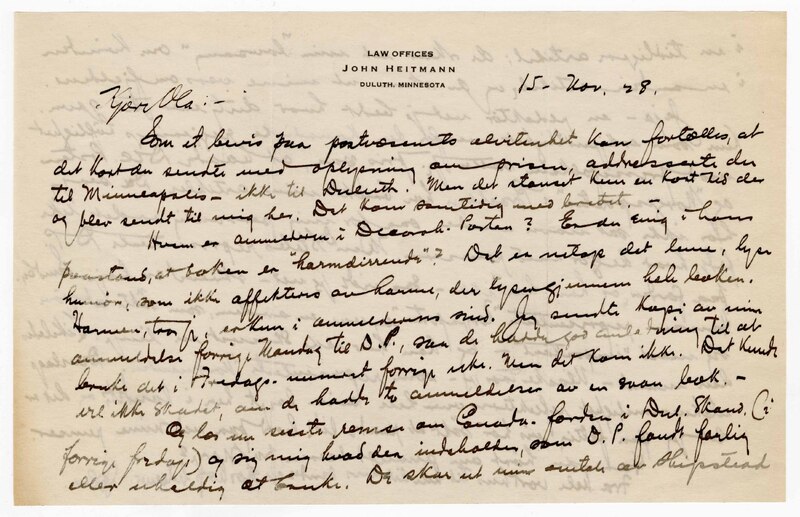 LAW OFFICES
JOHN HEITMANN
DULUTH, MINNESOTA
15 - Nov. 28.
Kjære Ola: -
Som et bevis paa postvæsenets alvitenhet kan fortælles, at
det kort du sendte med oplysning om prisen, addresserte du
til Minneapolis - ikke til Duluth. Men det stanset kun en kort tid der
og blev sendt til mig her. Det kom samtidig med brevet. -
Hvem er anmelderen i Decorah-Posten? Er du enig i hans
paastand, at boken er "harmdirrende"? Det er netop det lune, lyse
humør, som ikke affekteres av harme, der lyser gjennem hele boken.
Harmen, tror jeg, er kun i anmelderens sind. Jeg sendte kopi av min
anmeldelse forrige Mandag til D.P., saa de hadde god anledning til at
bruke det i Fredags-numret forrige uke. Men det kom ikke. Det kunde
vel ikke skadet, om de hadde to anmeldelser av en saan bok. -
Og læs nu siste remse om Canada-færden i Dul. Skand. (i
forrige fredags) og sig mig hvad den indeholder, som D.P. fandt farlig
eller uheldig at bruke. De skar ut min omtale av Shipstead